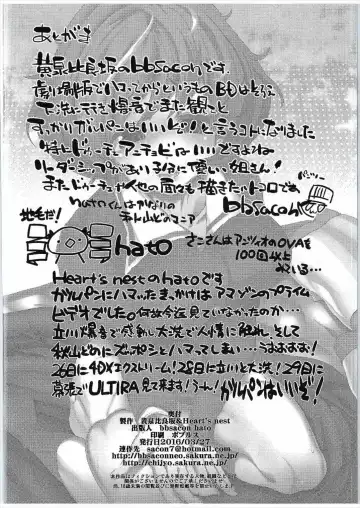 あとがき
黄泉比良坂のbbsaconです。
劇場版でハマってからというもの BDはそろえ
下洗に行き 爆音でまた観っと
すっかりガルパンはいいぞ!と言うコトになりました
特にドゥーチェアンチョビはいいですよね
リーダーシップがあり子に優しい姐さん!
またドゥーチェか他の面々も描きたいトコロです
hatoさんはかなりの
秋山どののマニア
bbsacon
地毛だ!
hato
さこさんはアンツィオのOVAを
100回以上
みている…
Heart's nestのhatoです
ガルパンにハマったきっかけは アマゾンのプライム
ビデオでした 何故今迄見ていなかったのか…
立川爆音で感動し大洗で人情に触れ そして
秋山どのにズッポシとハマってしまい…うおおおお!
26日に4DXエクストリーム! 28日に立川と大洗! 29日に
幕張でULTIRA見て来ます!うーん!ガルパンはいいぞ!
奥付
製作 黄泉比良坂&Heart's nest
出版人 bbsacon hato
印刷 ポプルス
発行日2016/03/27
連絡先 sacon7@hotmail.com
http://bbsaconneo.sakura.ne.jp/
http://chijyo.sakura.ne.jp/